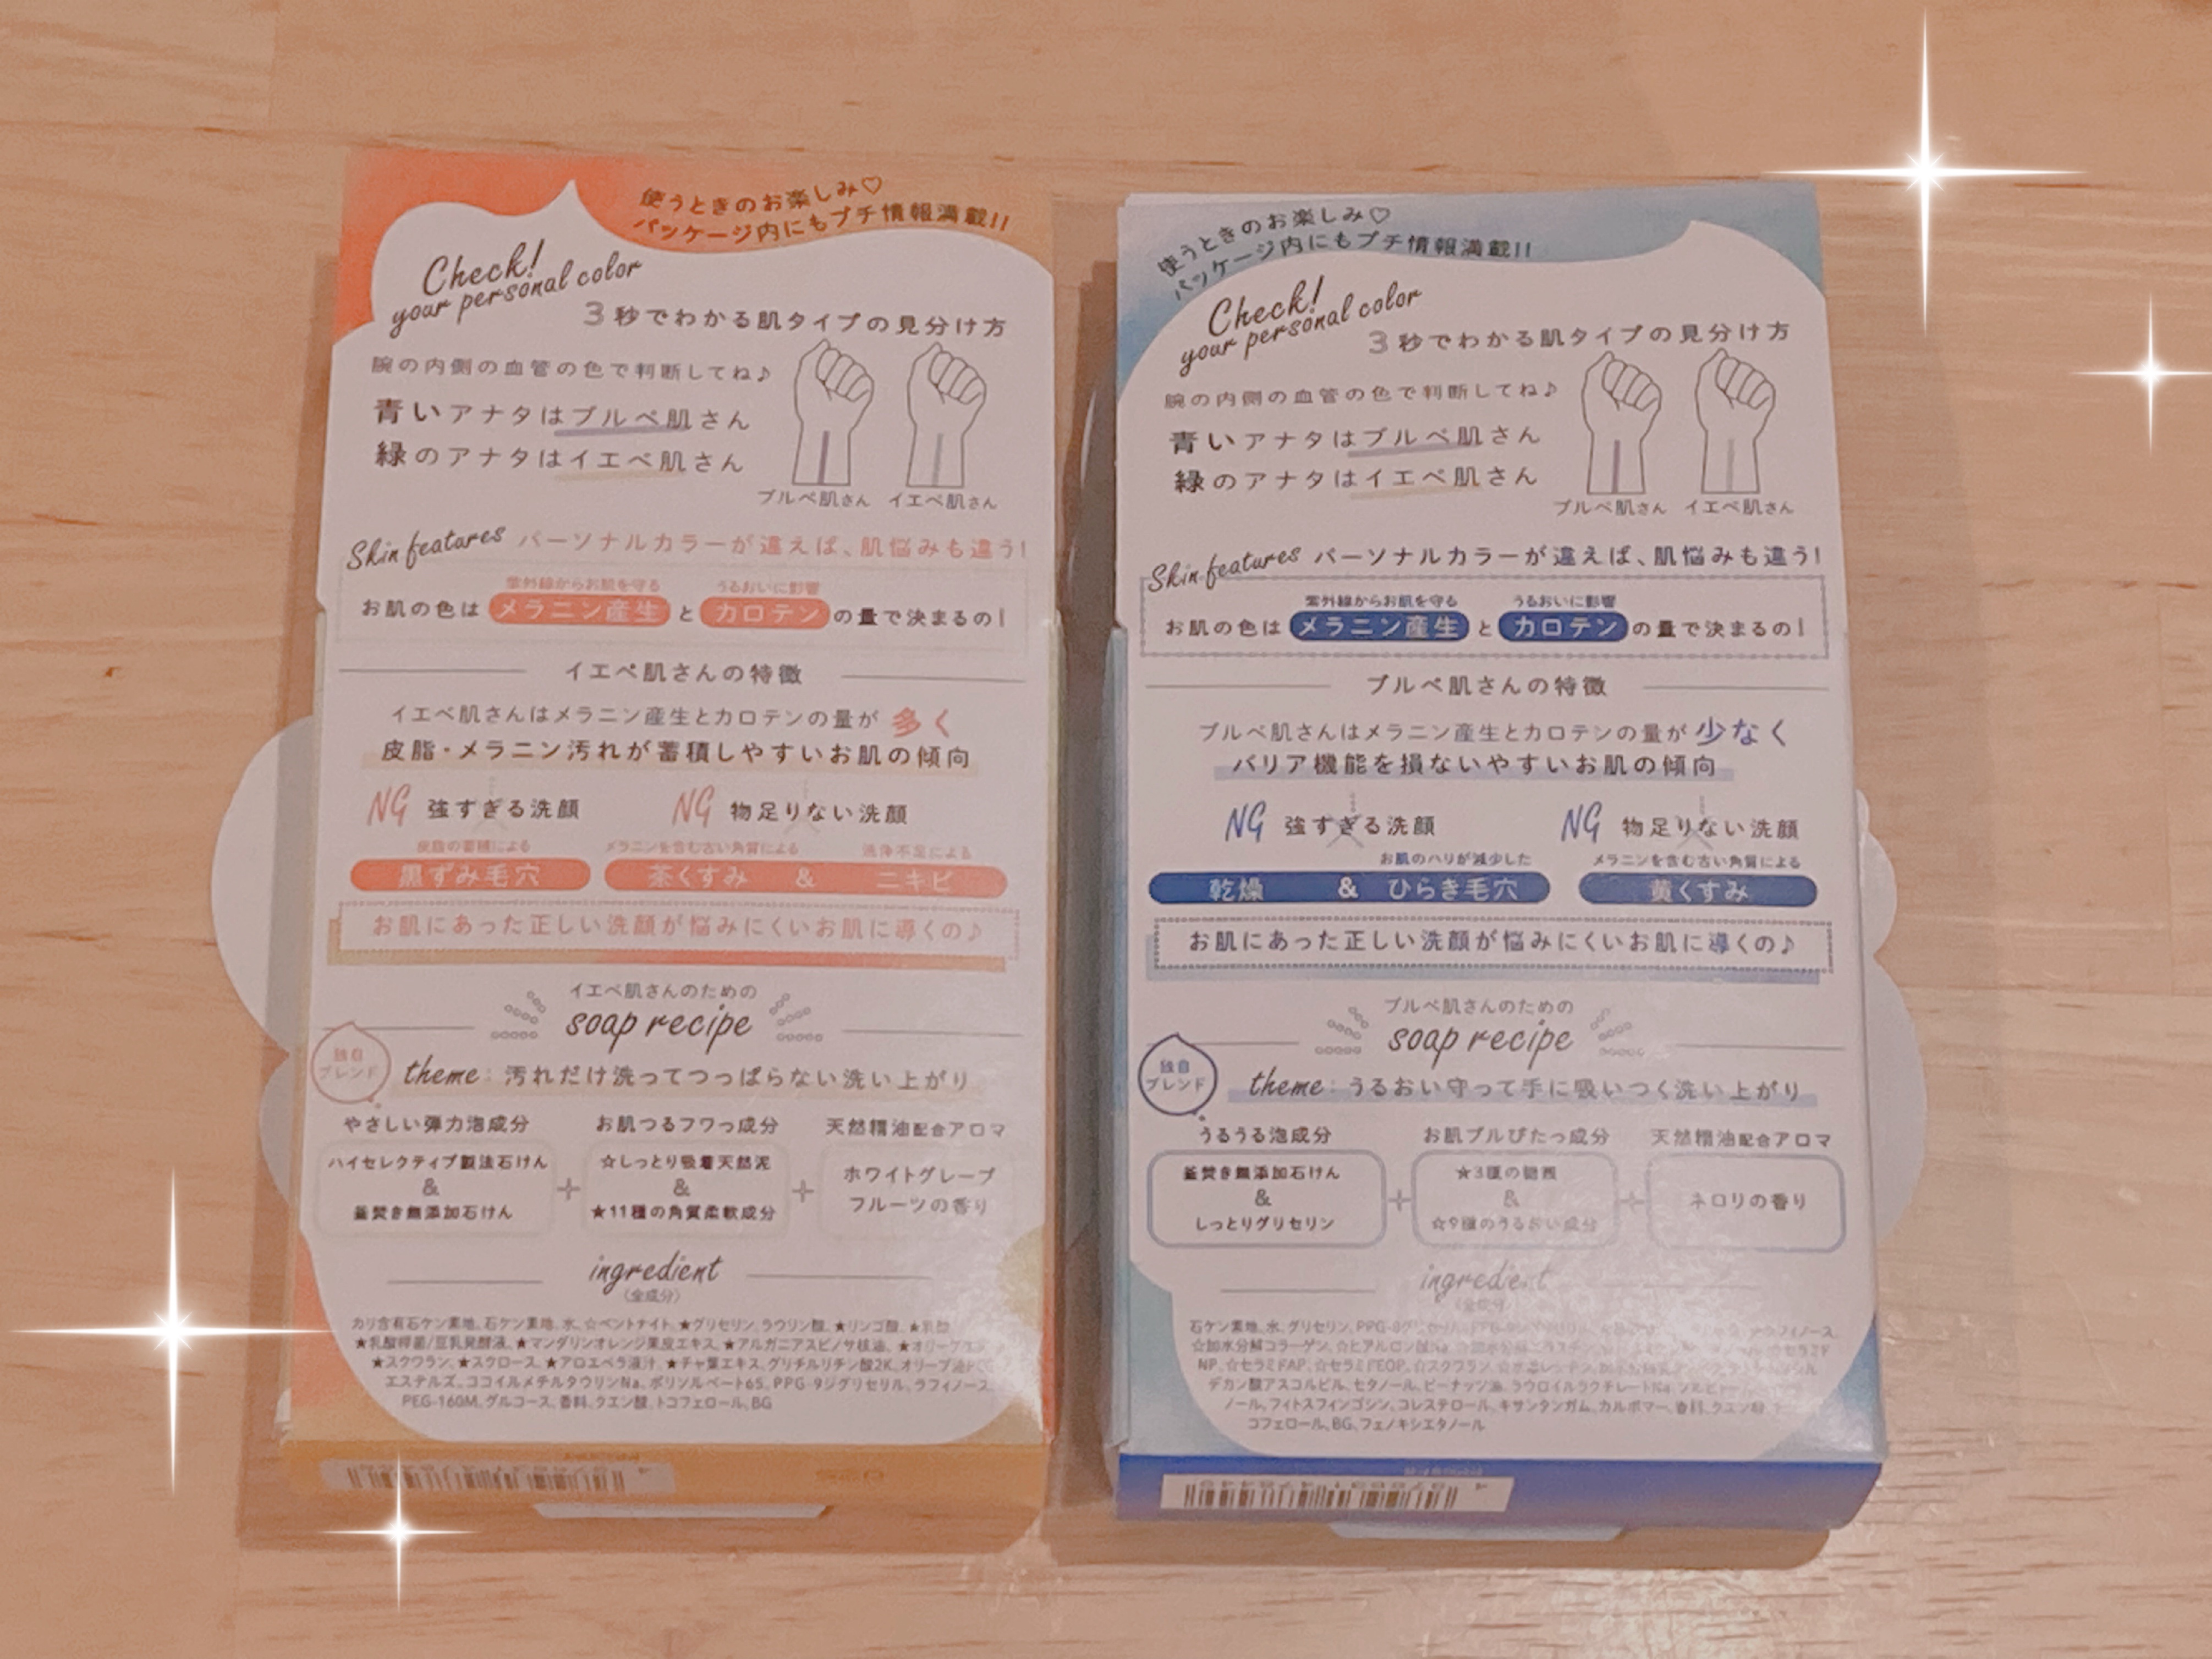 使うときのお楽しみ♡
パッケージ内にもプチ情報満載!!
Check!
your personal color
3秒でわかる肌タイプの見分け方
腕の内側の血管の色で判断してね♪
青いアナタはブルベ肌さん
緑のアナタはイエベ肌さん
ブルベ肌さん イエベ肌さん
Skin features パーソナルカラーが違えば、肌悩みも違う!
紫外線からお肌を守る うるおいに影響
お肌の色はメラニン産生とカロテンの量で決まるの!
イエベ肌さんの特徴
イエベ肌さんはメラニン産生とカロテンの量が多く
皮脂・メラニン汚れが蓄積しやすいお肌の傾向
NG 強すぎる洗顔 NG 物足りない洗顔
皮脂の蓄積による メラニンを含む古い角質による 洗浄不足による
黒ずみ毛穴 茶くすみ & ニキビ
お肌にあった正しい洗顔が悩みにくいお肌に導くの♪
イエベ肌さんのための
soap recipe
独自
ブレンド
theme: 汚れだけ洗ってつっぱらない洗い上がり
やさしい弾力泡成分 お肌つるフワっ成分 天然精油配合アロマ
ハイセレクティブ製法石けん
&
釜焚き無添加石けん
+
☆しっとり吸着天然泥
&
★11種の角質柔軟成分
+
ホワイトグレープ
フルーツの香り
ingredient
(全成分)
カリ含有石ケン素地、石ケン素地、水、☆ベントナイト、★グリセリン、ラウリン酸、★リンゴ酸、★乳酸
★乳酸桿菌/豆乳発酵液、★マンダリンオレンジ果皮エキス、★アルガニアスピノサ核油、
★スクワラン、★スクロース、★アロエベラ液汁、★チャ葉エキス、グリチルリチン酸2K、オリーブ油
エステルズ、ココイルメチルタウリンNa、ポリソルベート65、PPG-9ジグリセリル、ラフィノース、
PEG-160M、グルコース、香料、クエン酸、トコフェロール、BG
使うときのお楽しみ♡
パッケージ内にもプチ情報満載!!
Check!
your personal color
3秒でわかる肌タイプの見分け方
腕の内側の血管の色で判断してね♪
青いアナタはブルベ肌さん
緑のアナタはイエベ肌さん
ブルベ肌さん イエベ肌さん
Skin features パーソナルカラーが違えば、肌悩みも違う!
紫外線からお肌を守る うるおいに影響
お肌の色はメラニン産生とカロテンの量で決まるの!
ブルベ肌さんの特徴
ブルベ肌さんはメラニン産生とカロテンの量が少なく
バリア機能を損ないやすいお肌の傾向
NG 強すぎる洗顔 NG 物足りない洗顔
お肌のハリが減少した メラニンを含む古い角質による
乾燥 & ひらき毛穴 黄くすみ
お肌にあった正しい洗顔が悩みにくいお肌に導くの♪
ブルベ肌さんのための
soap recipe
独自
ブレンド
theme: うるおい守って手に吸いつく洗い上がり
うるうる泡成分 お肌プルぴたっ成分 天然精油配合アロマ
釜焚き無添加石けん
&
しっとりグリセリン
+
★3種の
&
☆9種のうるおい成分
+
ネロリの香り
ingredient
(全成分)
石ケン素地、水、グリセリン、
☆加水分解コラーゲン、☆ヒアルロン酸
NP、☆セラミドAP、☆セラミドEOP、☆スクワラン、
デカン酸アスコルビル、セタノール、ピーナッツ油、ラウロイルラクチレートNa、
ノール、フィトスフィンゴシン、コレステロール、キサンタンガム、カルボマー、香料、クエン酸、
コフェロール、BG、フェノキシエタノール